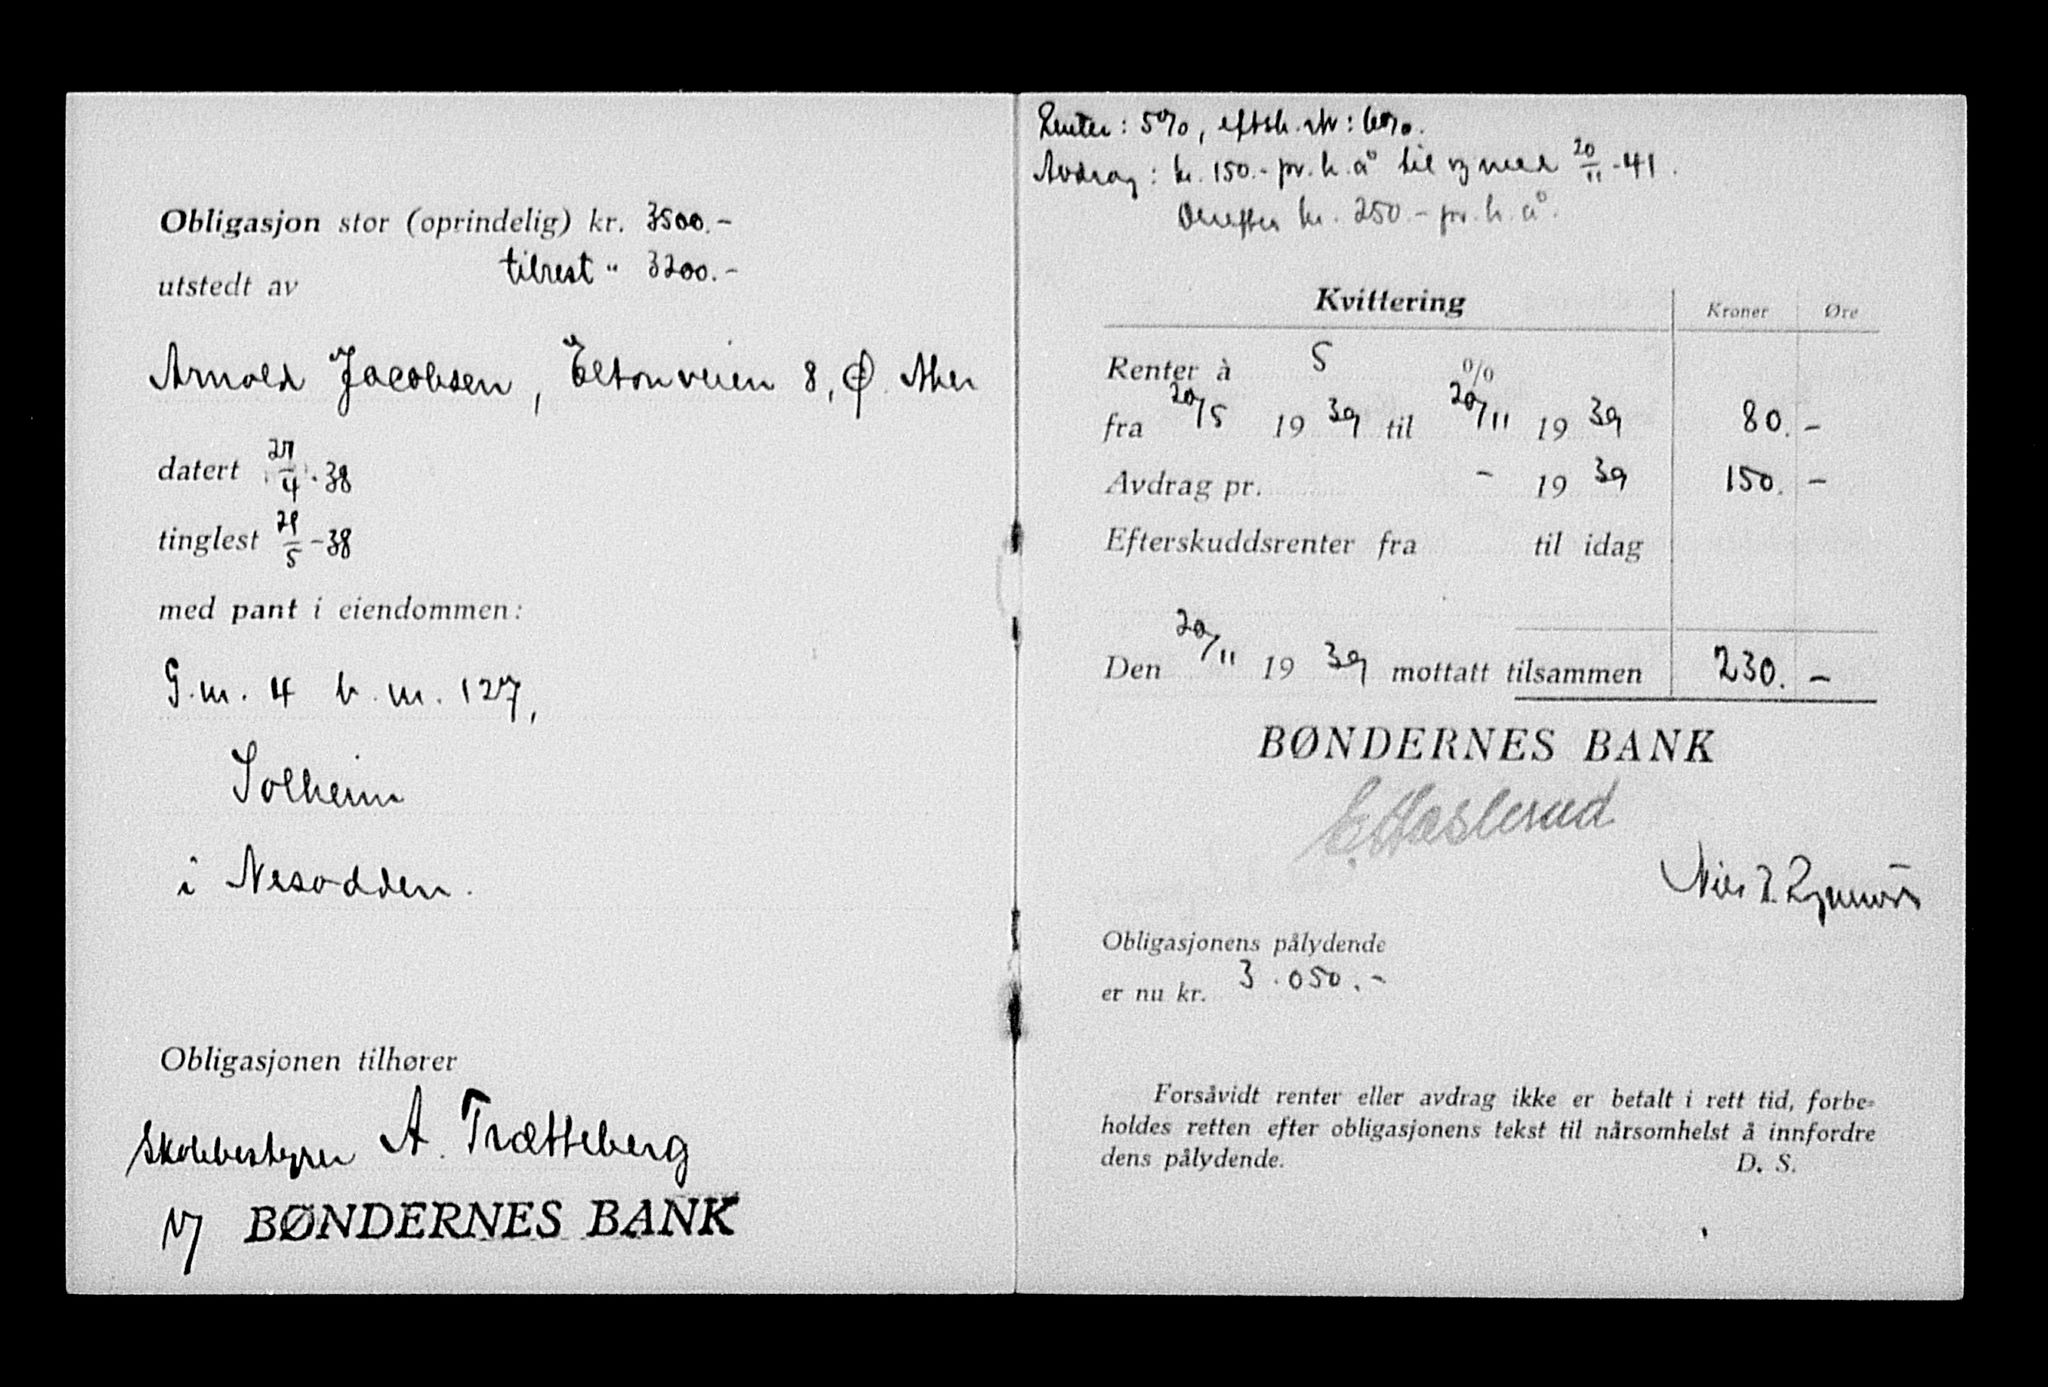 Obligasjon stor (oprindelig) kr. 3500.-
tilrest " 3200.-
utstedt av
Arnold Jacobsen, Eltonveien 8, Ø. Aker
datert 27/4.38
tinglest /5-38
med pant i eiendommen:
G.nr. 4 b.nr. 127,
Solheim
i Nesodden.
Obligasjonen tilhører
Skolebestyrer A. Trætteberg
BØNDERNES BANK
Renter: 5%, eftsk.rtr: 6%.
Avdrag: kr. 150.- pr. h. å til og med 20/11-41.
Derefter kr. 250.- pr. h. å.
Kvittering Kroner Øre
Renter à 5 %
fra 20/5 19 39 til 20/11 19 39 80.-
Avdrag pr. - 19 39 150.-
Efterskuddsrenter fra til idag
Den 20/11 19 39 mottatt tilsammen 230.-
BØNDERNES BANK
E. Haslerud
Obligasjonens pålydende
er nu kr. 3.050.-
Forsåvidt renter eller avdrag ikke er betalt i rett tid, forbe-
holdes retten efter obligasjonens tekst til nårsomhelst å innfordre
dens pålydende.
D. S.